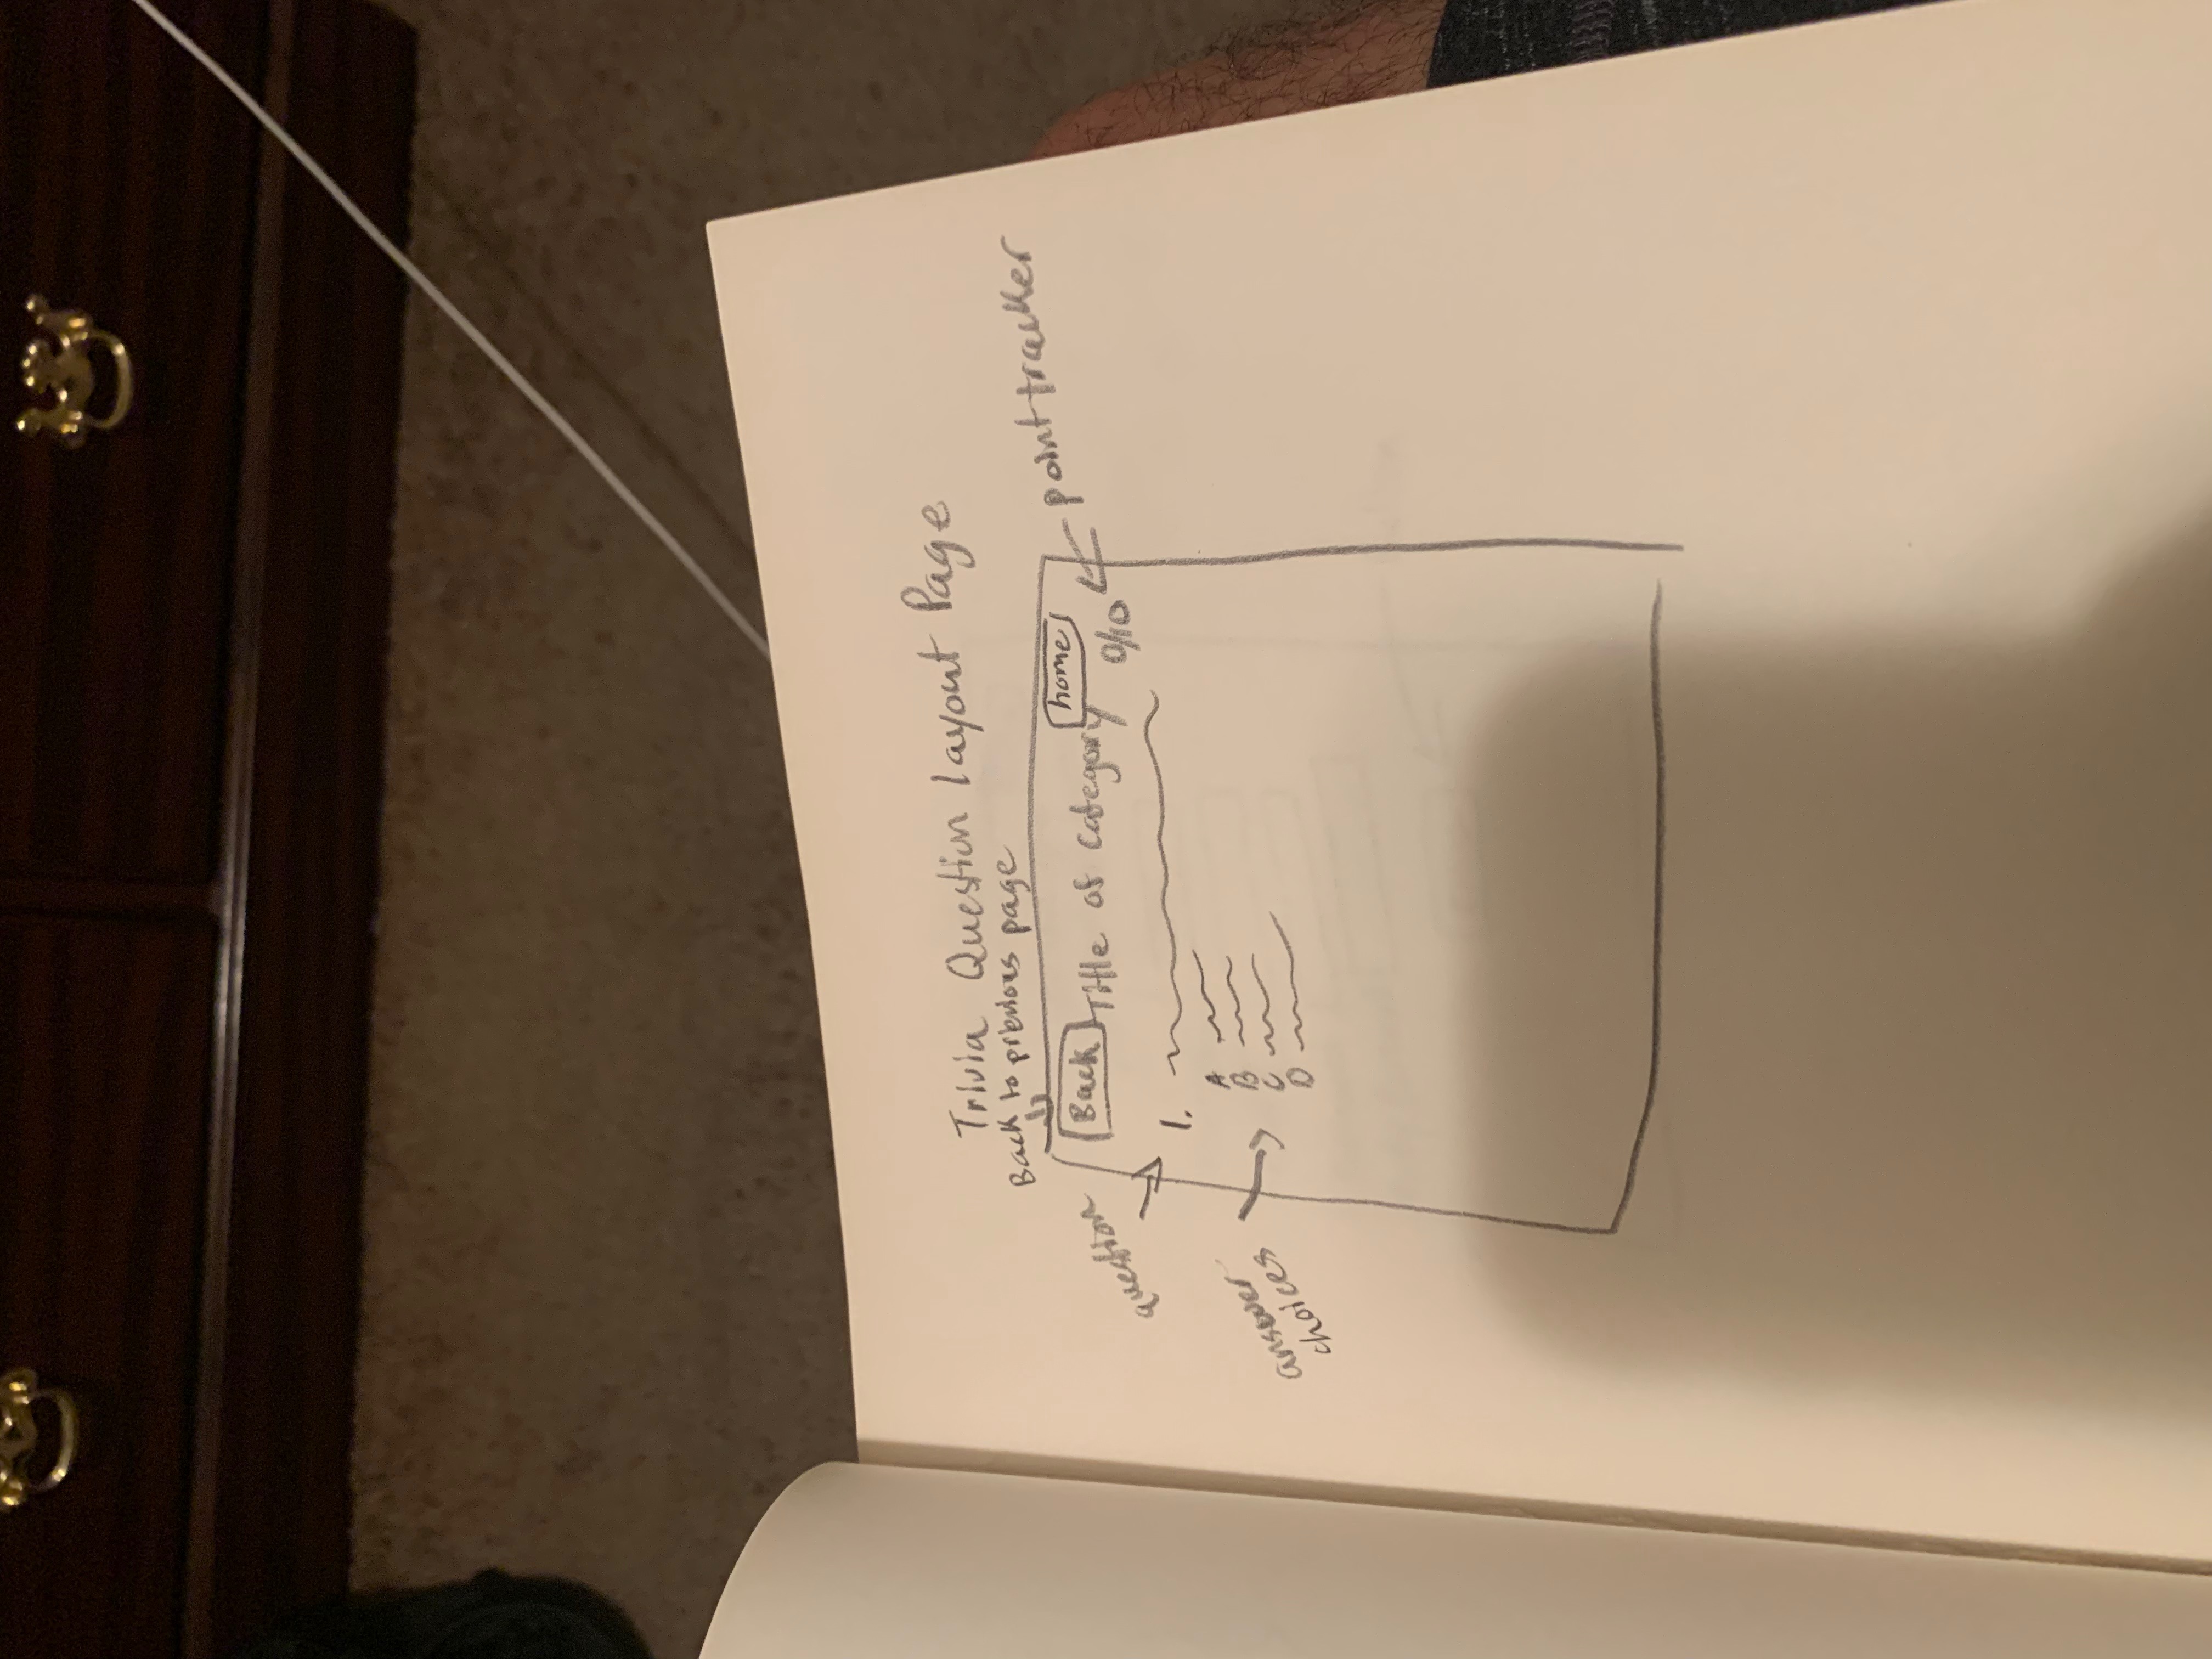 Trivia Question layout Page
Back to previous page
Back
home
Title of category
0/10
point tracker
question
1.
A
B
C
D
answer
choices